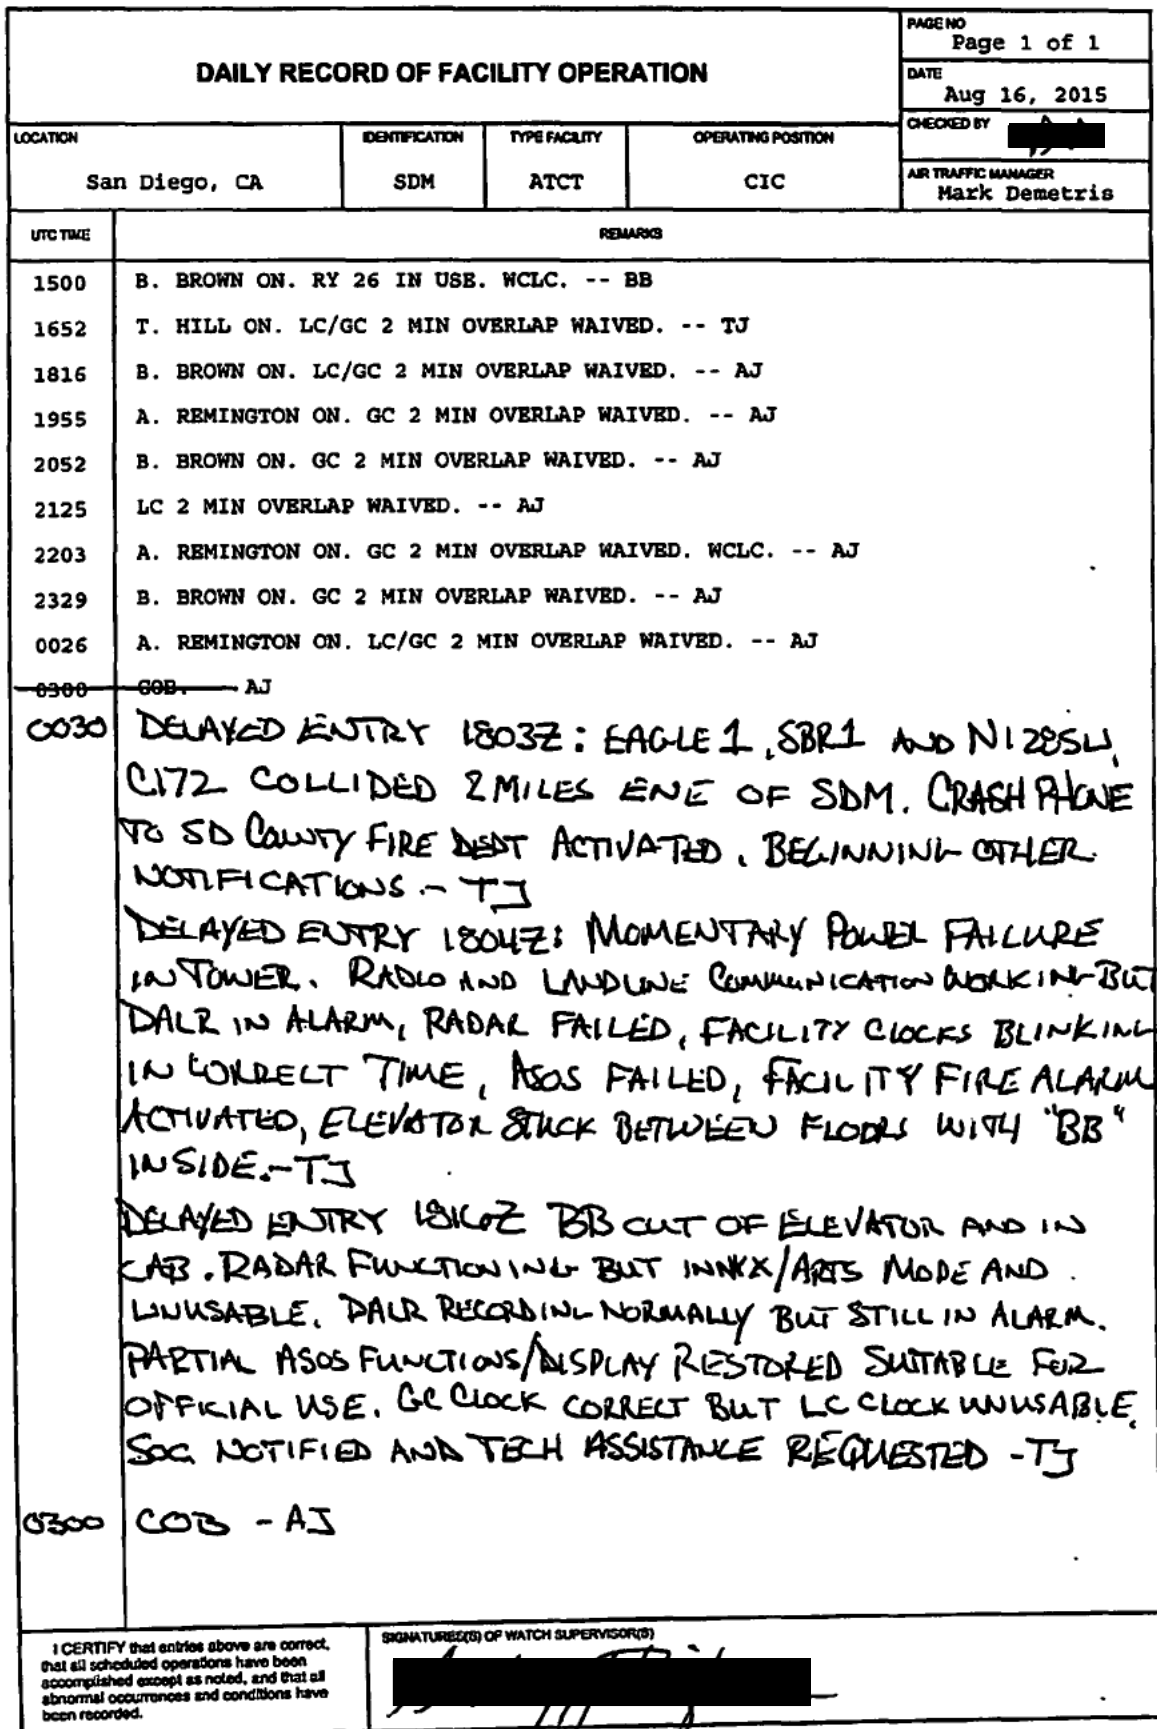 DAILY RECORD OF FACILITY OPERATION
PAGE NO
Page 1 of 1
DATE
Aug 16, 2015
CHECKED BY
LOCATION
San Diego, CA
IDENTIFICATION
SDM
TYPE FACILITY
ATCT
OPERATING POSITION
CIC
AIR TRAFFIC MANAGER
Mark Demetris
UTC TIME REMARKS
1500 B. BROWN ON. RY 26 IN USE. WCLC. -- BB
1652 T. HILL ON. LC/GC 2 MIN OVERLAP WAIVED. -- TJ
1816 B. BROWN ON. LC/GC 2 MIN OVERLAP WAIVED. -- AJ
1955 A. REMINGTON ON. GC 2 MIN OVERLAP WAIVED. -- AJ
2052 B. BROWN ON. GC 2 MIN OVERLAP WAIVED. -- AJ
2125 LC 2 MIN OVERLAP WAIVED. -- AJ
2203 A. REMINGTON ON. GC 2 MIN OVERLAP WAIVED. WCLC. -- AJ
2329 B. BROWN ON. GC 2 MIN OVERLAP WAIVED. -- AJ
0026 A. REMINGTON ON. LC/GC 2 MIN OVERLAP WAIVED. -- AJ
0300 COB. -- AJ
0030 DELAYED ENTRY 1803Z: EAGLE 1, SBR1 AND N1285U,
C172 COLLIDED 2 MILES ENE OF SDM. CRASH PHONE
TO SD COUNTY FIRE DEPT ACTIVATED. BEGINNING OTHER
NOTIFICATIONS - TJ
DELAYED ENTRY 1804Z: MOMENTARY POWER FAILURE
IN TOWER. RADIO AND LANDLINE COMMUNICATION WORKING BUT
DALR IN ALARM, RADAR FAILED, FACILITY CLOCKS BLINKING
INCORRECT TIME, ASOS FAILED, FACILITY FIRE ALARM
ACTIVATED, ELEVATOR STUCK BETWEEN FLOORS WITH "BB"
INSIDE.-TJ
DELAYED ENTRY BB OUT OF ELEVATOR AND IN
CAB. RADAR FUNCTIONING BUT IN NKX/ARTS MODE AND
UNUSABLE. DALR RECORDING NORMALLY BUT STILL IN ALARM.
PARTIAL ASOS FUNCTIONS/DISPLAY RESTORED SUITABLE FOR
OFFICIAL USE. GC CLOCK CORRECT BUT LC CLOCK UNUSABLE.
SOC NOTIFIED AND TECH ASSISTANCE REQUESTED - TJ
0300 COB - AJ
I CERTIFY that entries above are correct,
that all scheduled operations have been
accomplished except as noted, and that all
abnormal occurrences and conditions have
been recorded.
SIGNATURES(S) OF WATCH SUPERVISOR(S)